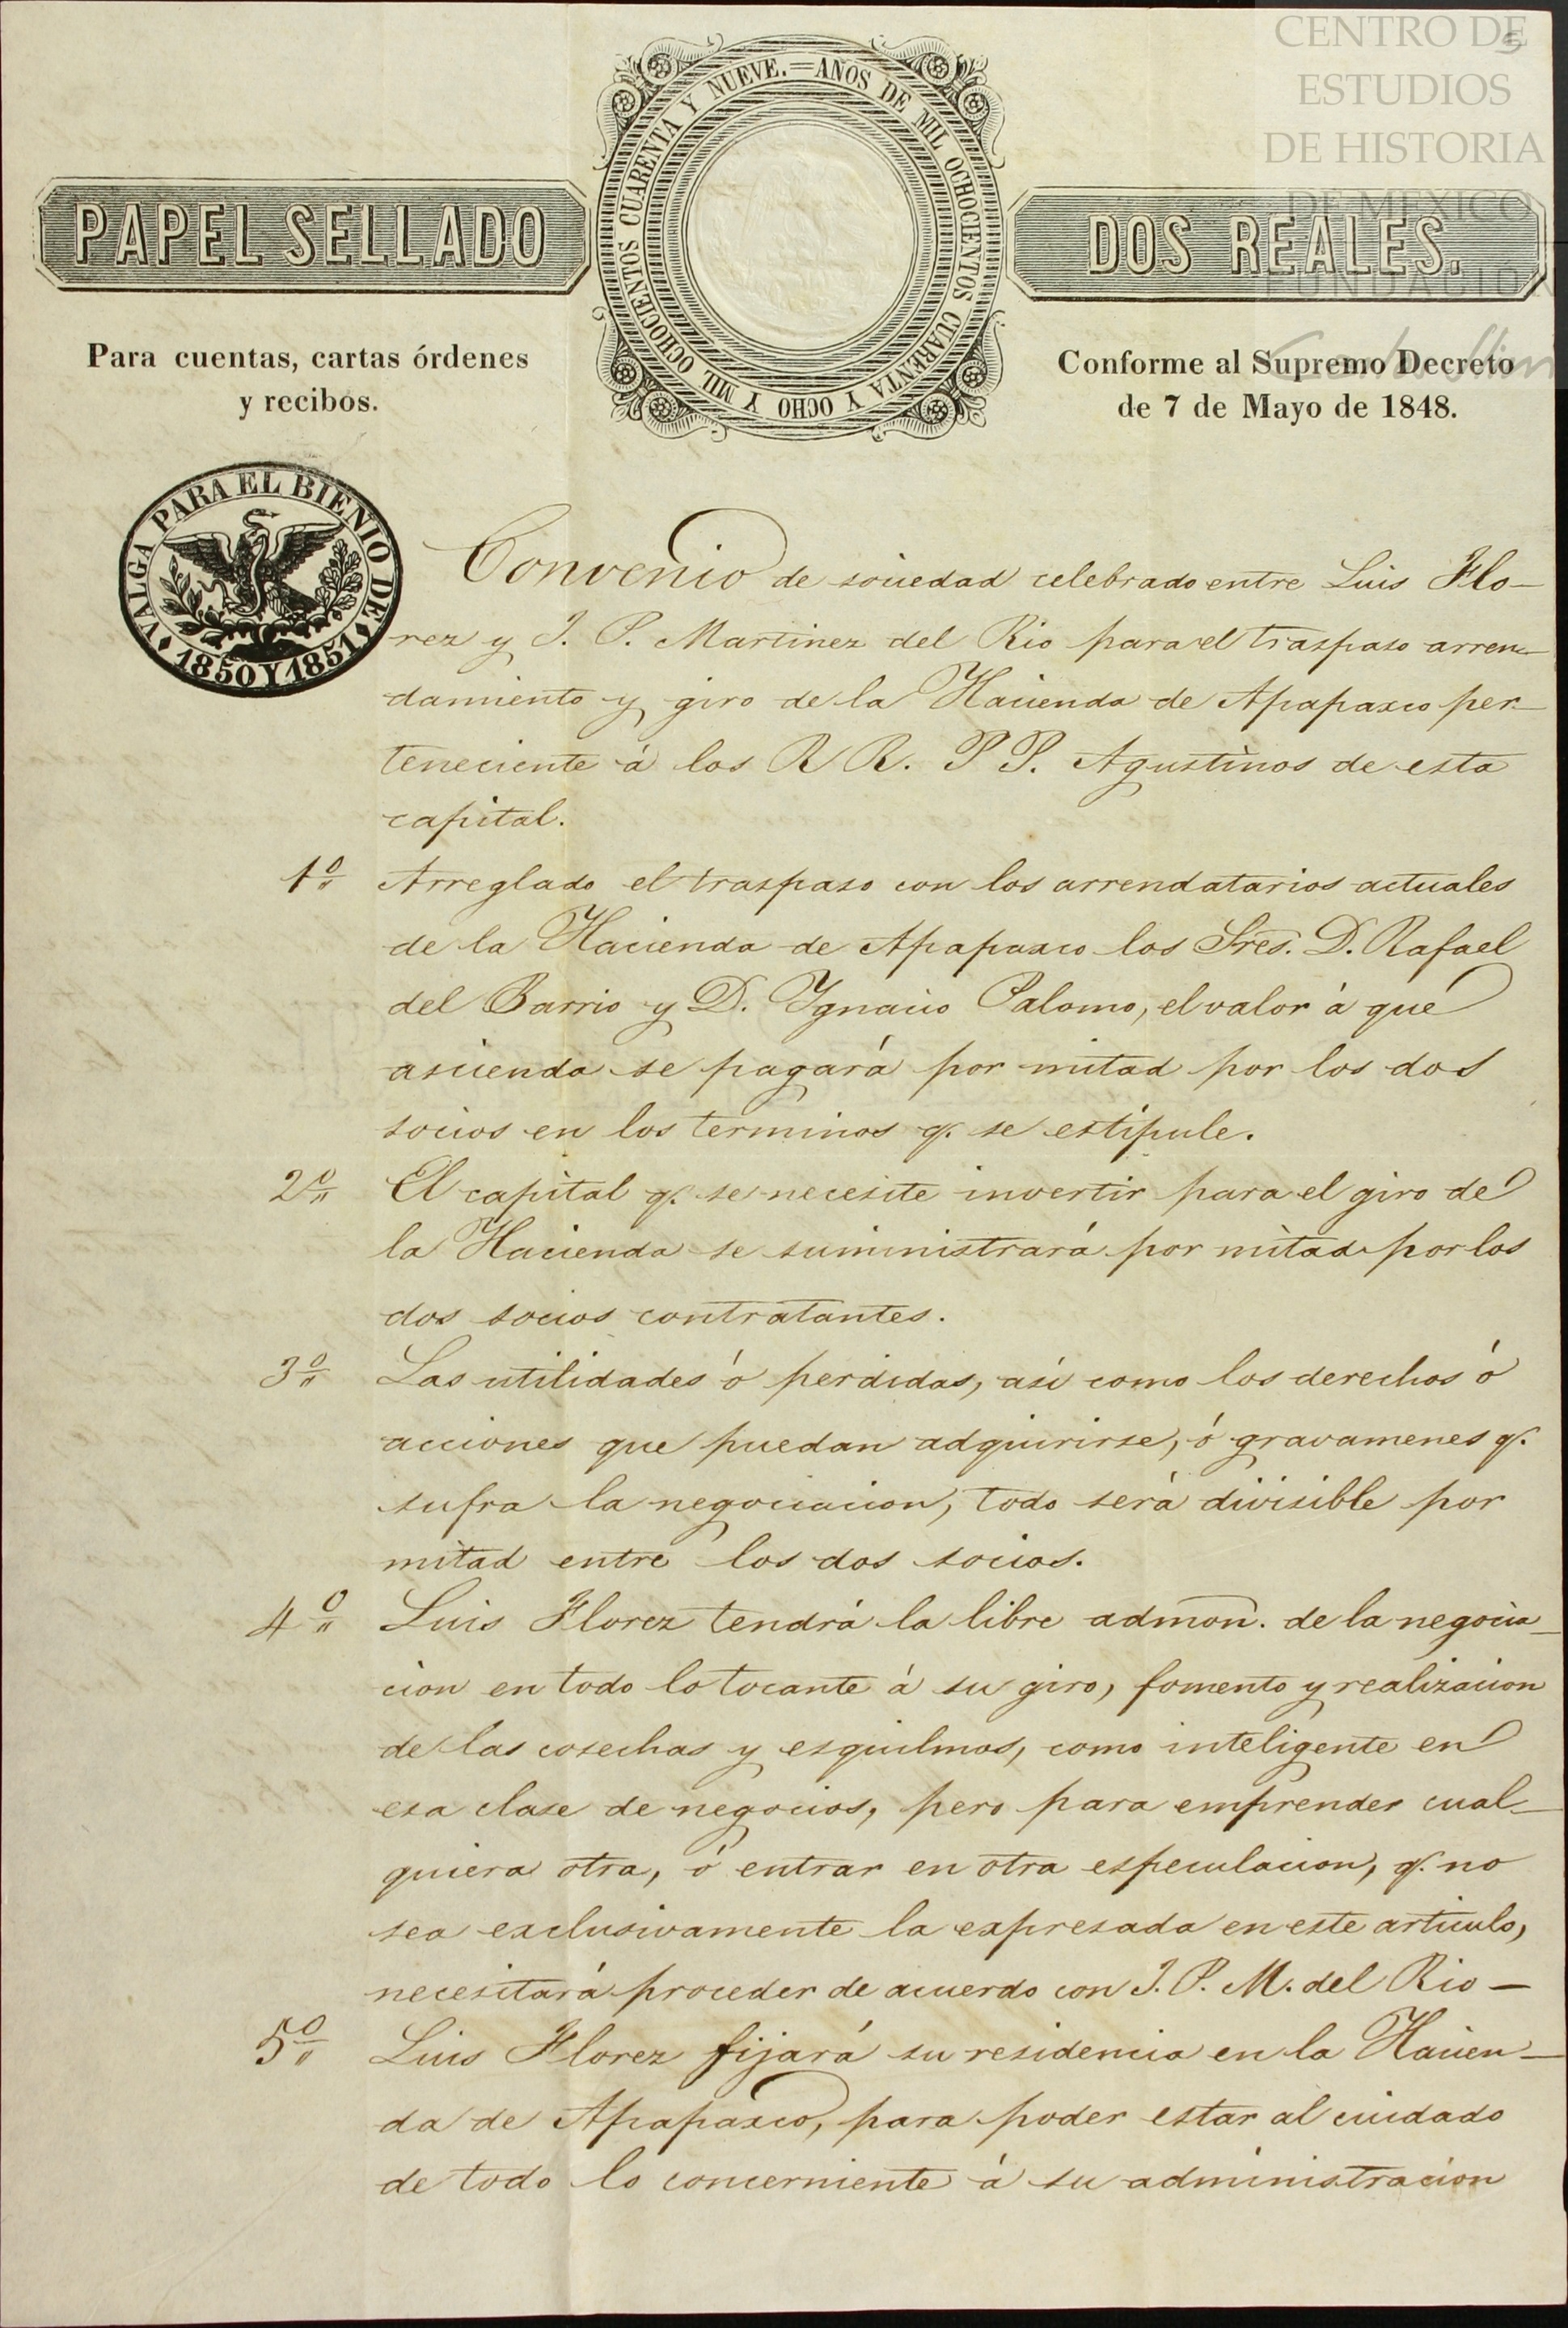 CENTRO DE
ESTUDIOS
DE HISTORIA
DE MEXICO
FUNDACION
5
AÑOS DE MIL OCHOCIENTOS CUARENTA Y OCHO Y MIL OCHOCIENTOS CUARENTA Y NUEVE.=
PAPEL SELLADO
DOS REALES.
Para cuentas, cartas órdenes
y recibos.
Conforme al Supremo Decreto
de 7 de Mayo de 1848.
VALGA PARA EL BIENIO DE
1850 Y 1851
Convenio de sociedad celebrado entre Luis Flo-
rez y J. P. Martinez del Rio para el traspaso arren-
damiento y giro de la Hacienda de Apapaxco per-
teneciente á los R R. P P. Agustinos de esta
capital.
1º Arreglado el traspaso con los arrendatarios actuales
de la Hacienda de Apapaxco los Sres. D. Rafael
del Barrio y D. Ygnacio Palomo, el valor á que
ascienda se pagará por mitad por los dos
socios en los terminos q. se estipule.
2º El capital q. se necesite invertir para el giro de
la Hacienda se suministrará por mitad por los
dos socios contratantes.
3º Las utilidades ó perdidas, así como los derechos ó
acciones que puedan adquirirse, ó gravamenes q.
sufra la negociacion, todo será divisible por
mitad entre los dos socios.
4º Luis Florez tendrá la libre admon. de la negocia-
cion en todo lo tocante á su giro, fomento y realizacion
de las cosechas y esquilmos, como inteligente en
esa clase de negocios, pero para emprender cual-
quiera otra, ó entrar en otra especulacion, q. no
sea exclusivamente la expresada en este articulo,
necesitará proceder de acuerdo con J. P. M. del Rio -
5º Luis Florez fijará su residencia en la Hacien-
da de Apapaxco, para poder estar al cuidado
de todo lo concerniente á su administracion